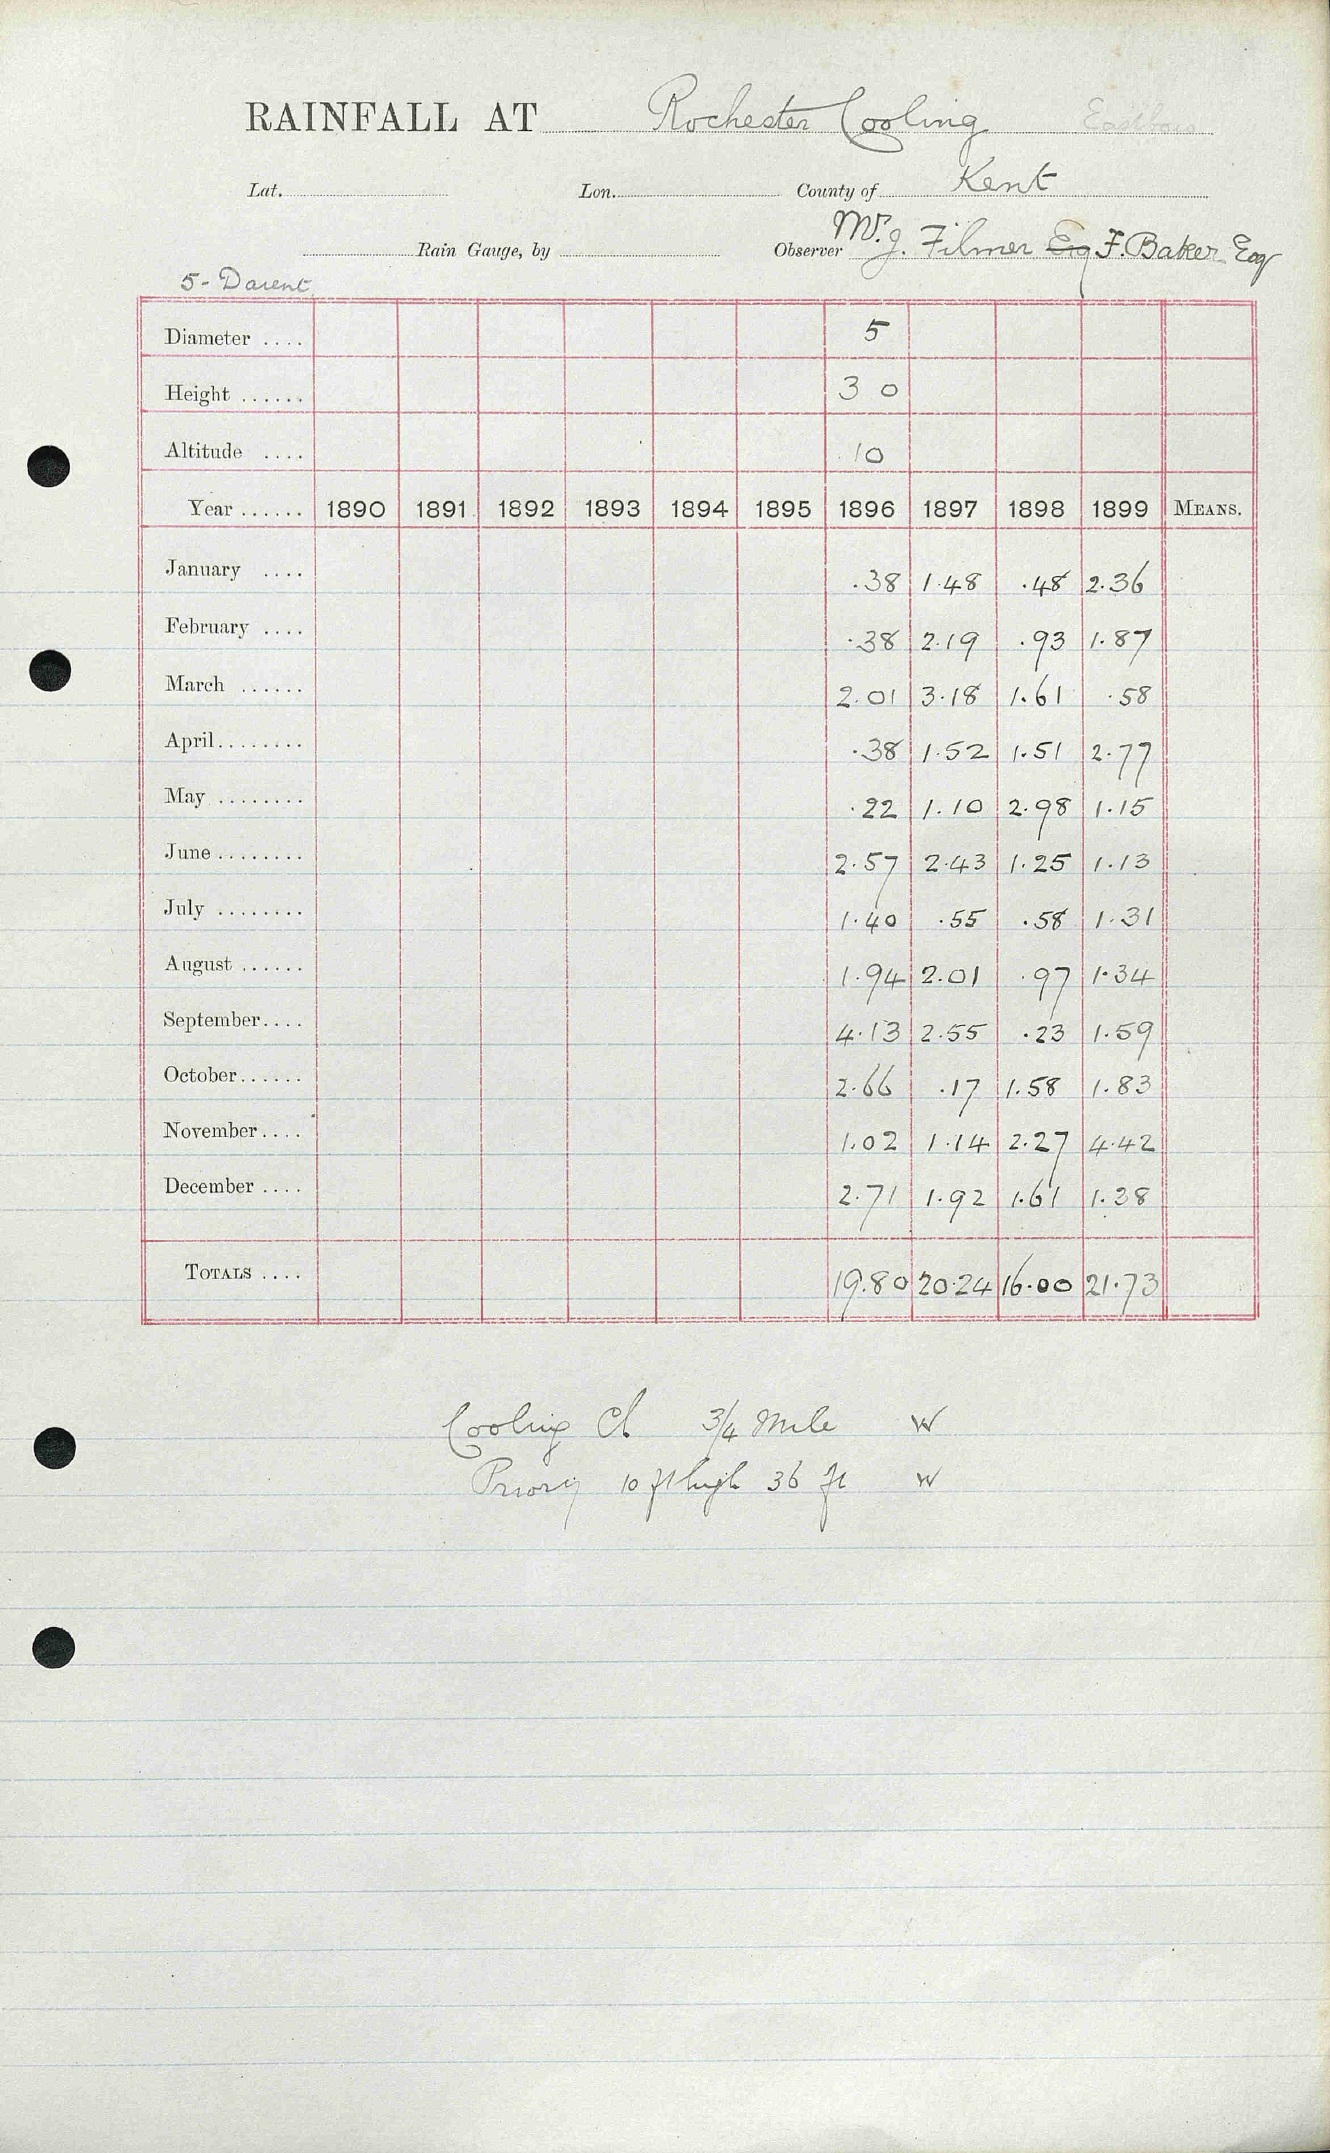 RAINFALL AT Rochester Cooling
Lat. Lon. County of Kent
Rain Gauge, by Observer Mr. J. Filmer Esq F. Baker Esq
5 - Darent
Diameter .... 5
Height ...... 3 0
Altitude .... 10
Year ...... 1890 1891 1892 1893 1894 1895 1896 1897 1898 1899 MEANS.
January .... .38 1.48 .48 2.36
February .... .38 2.19 .93 1.87
March ...... 2.01 3.18 1.61 .58
April........ .38 1.52 1.51 2.77
May ........ .22 1.10 2.98 1.15
June ........ 2.57 2.43 1.25 1.13
July ........ 1.40 .55 .58 1.31
August ...... 1.94 2.01 .97 1.34
September.... 4.13 2.55 .23 1.59
October...... 2.66 .17 1.58 1.83
November.... 1.02 1.14 2.27 4.42
December .... 2.71 1.92 1.61 1.38
TOTALS .... 19.80 20.24 16.00 21.73
Cooling Ch 3/4 Mile W
Priory 10 ft high 36 ft W